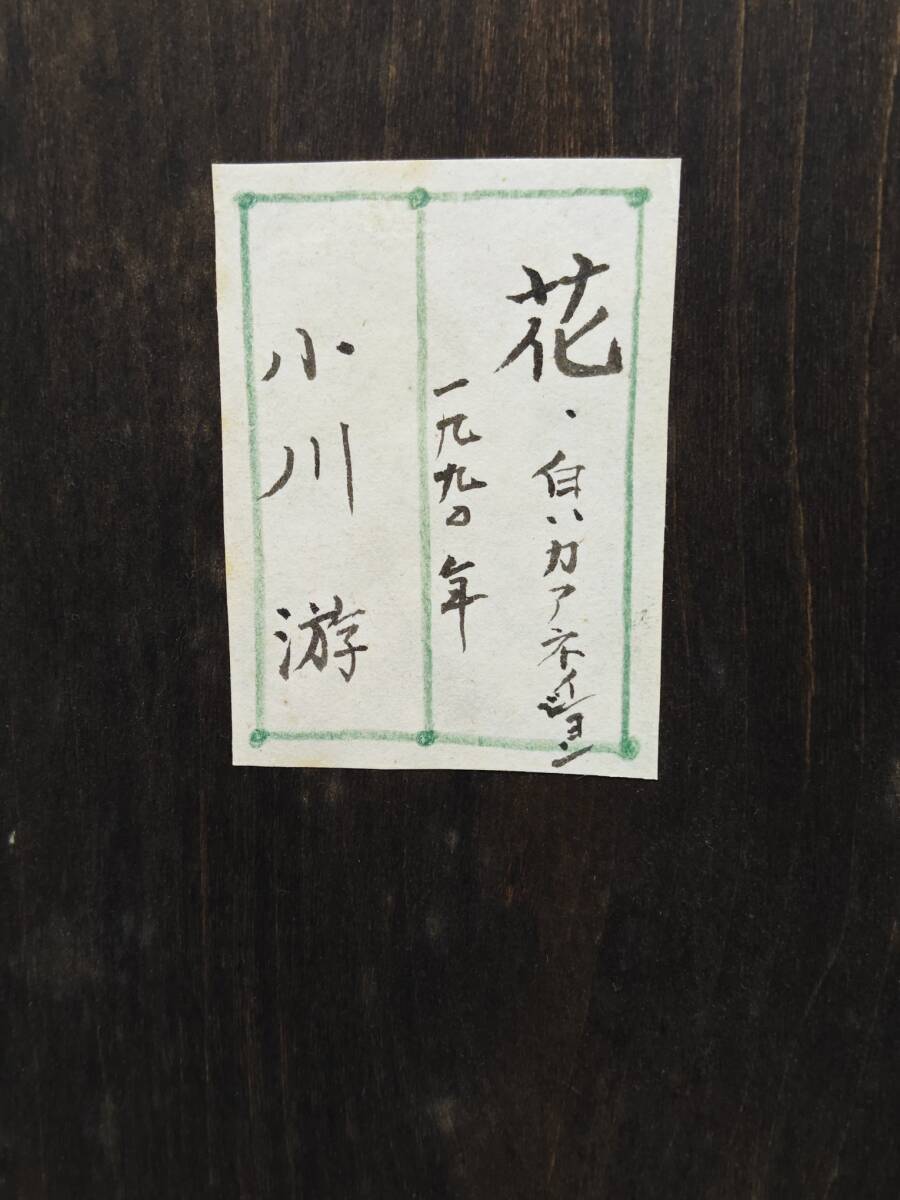 花・白いカアネイション
一九九〇年
小川游